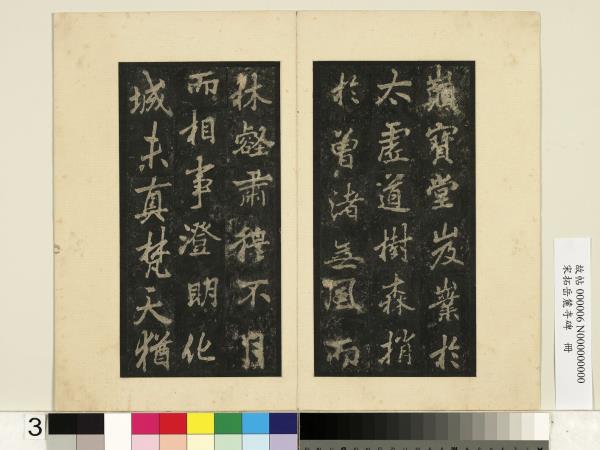 巔寶堂岌業於
太虛道樹森捎
於曾渚無風而
林壑肅穆不月
而相事澄明化
城未真梵天猶
故帖 000006 N000000000
宋拓岳麓寺碑 冊
3